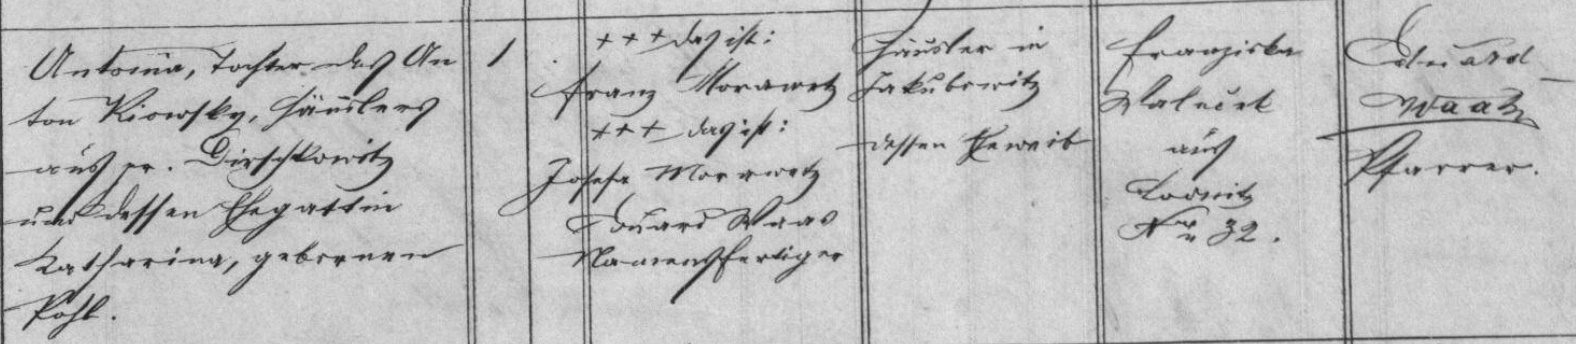 Antonia, Tochter des An
ton Kiowsky, Häuslers
aus pr. Dirschkowitz
und dessen Ehegattin
Katharina, gebornen
Pohl.
1
+++ das ist:
Franz Morawetz
+++ das ist:
Josefa Morawetz
Eduard Waas
Namensfertiger
Häusler in
Jakubowitz
dessen Eheweib
Franziska
aus
Lodnitz
Nro 32.
Eduard
Waas
Pfarrer.